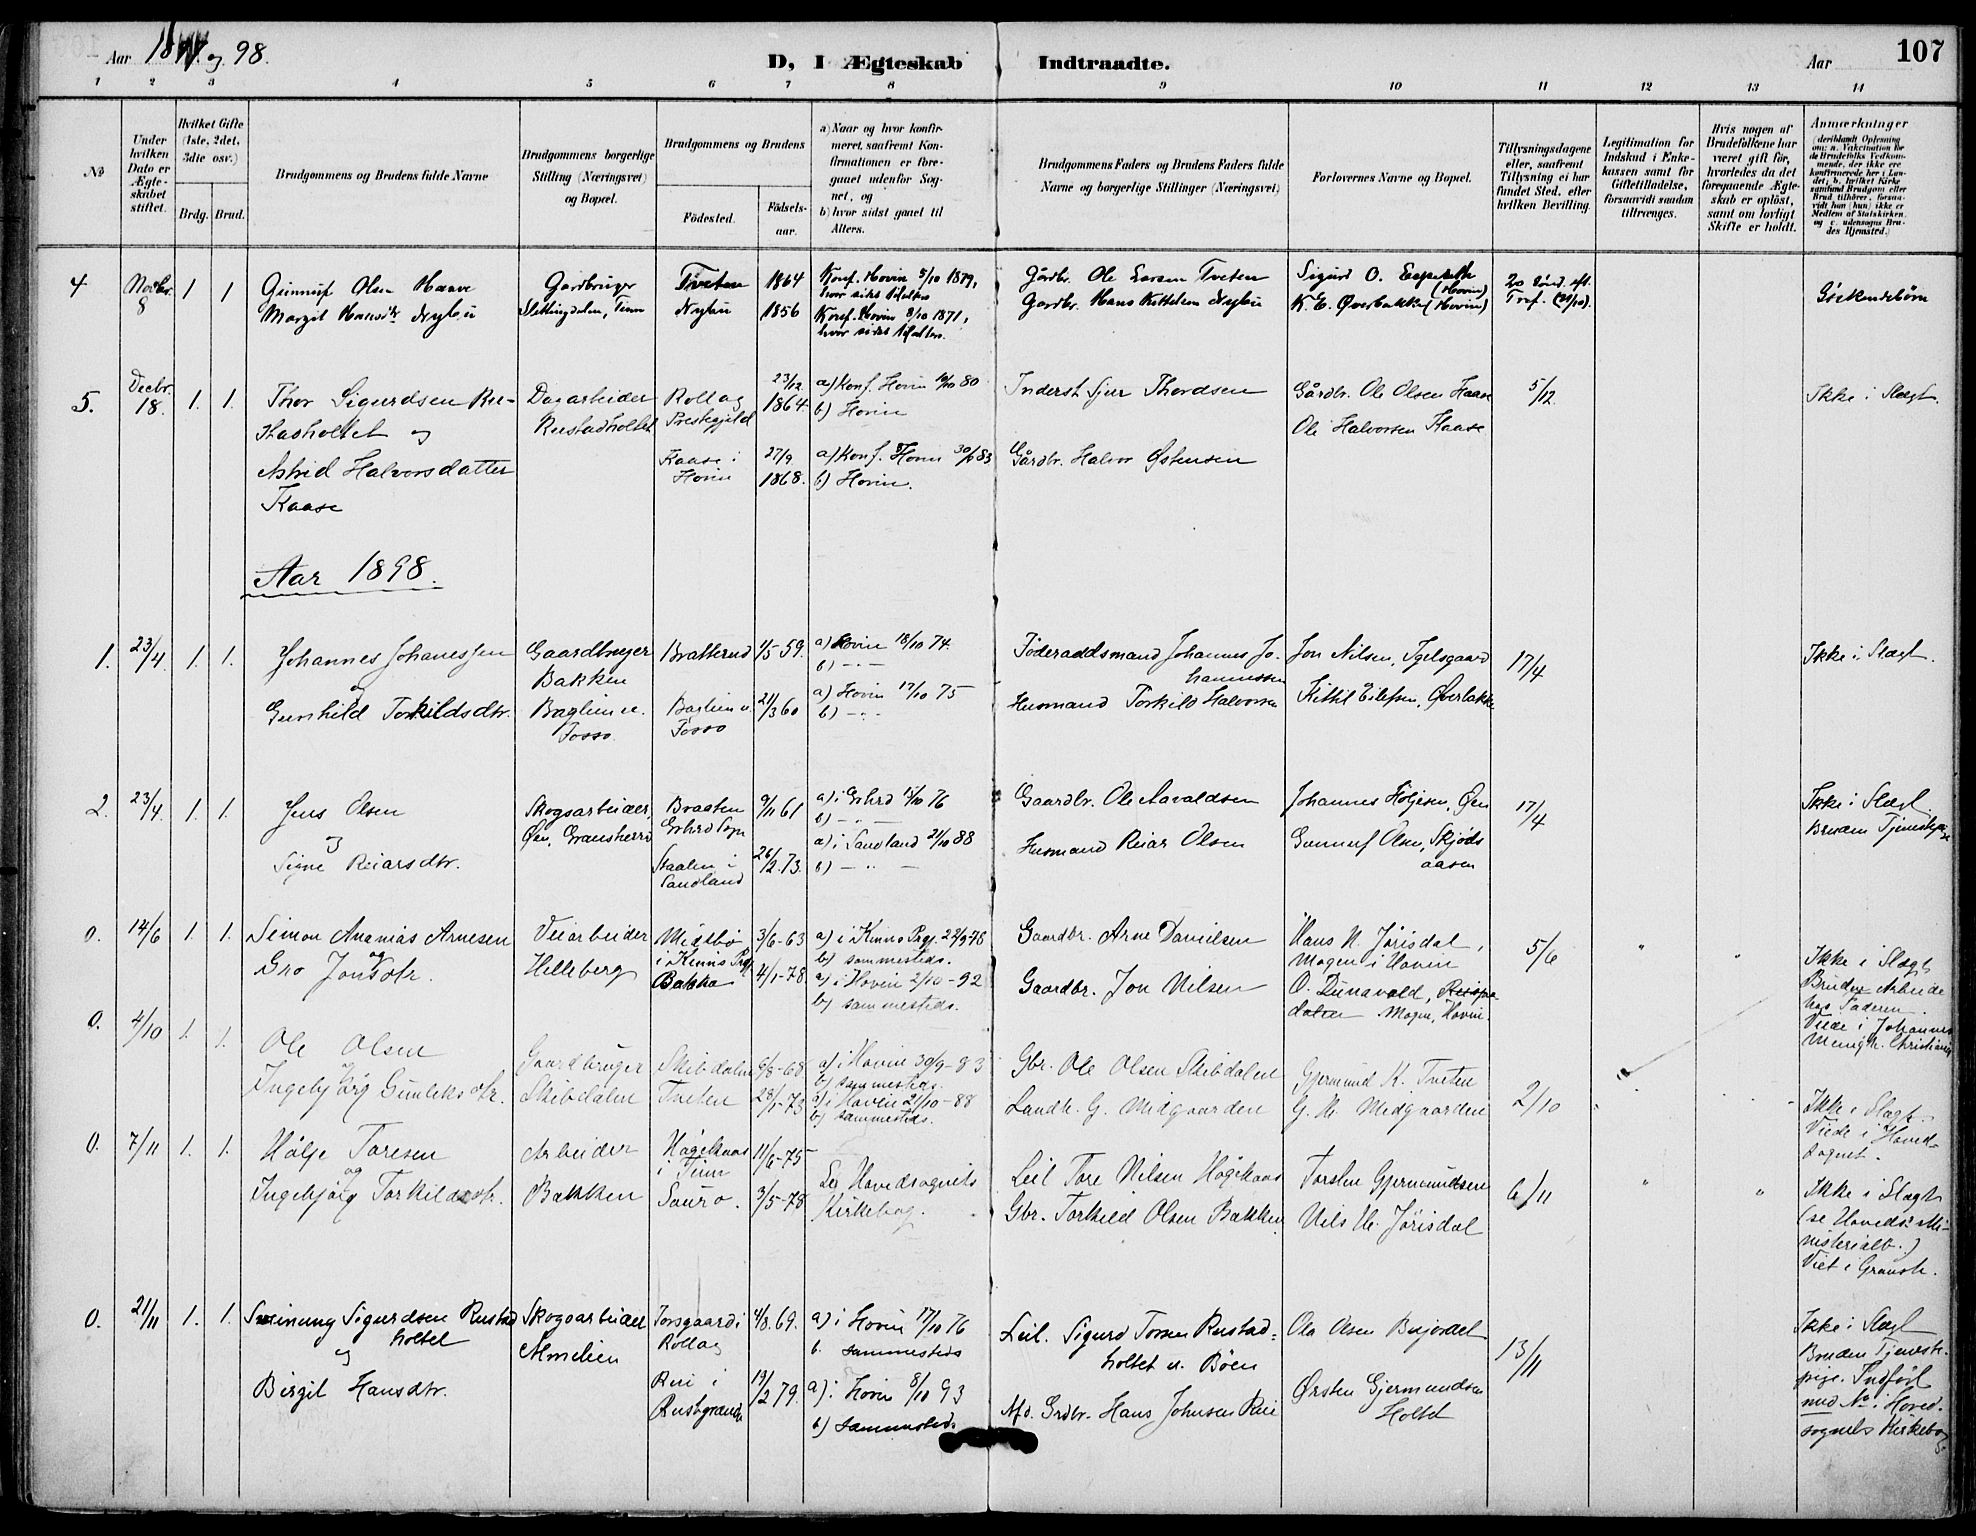 Aar 1897 og 98.
D, I Ægteskab Indtraadte.
Aar
107
1 2 3 4 5 6 7 8 9 10 11 12 13 14
No
Under hvilken Dato er Ægteskabet stiftet.
Hvilket Gifte (1ste, 2det, 3die osv.)
Brdg. Brud.
Brudgommens og Brudens fulde Navne
Brudgommens borgerlige Stilling (Næringsvei) og Bopæl.
Brudgommens og Brudens
Födested.
Födselsaar.
a) Naar og hvor konfirmeret, saafremt Konfirmationen er foregaaet udenfor Sognet, og
b) hvor sidst gaaet til Alters.
Brudgommens Faders og Brudens Faders fulde Navne og borgerlige Stillinger (Næringsvei)
Forlovernes Navne og Bopæl.
Tillysningsdagene eller, saafremt Tillysning ei har fundet Sted, efter hvilken Bevilling.
Legitimation for Indskud i Enkekassen samt for Giftetilladelse, forsaavidt saadan tiltrænges.
Hvis nogen af Brudefolkene har været gift för, hvorledes da det foregaaende Ægteskab er oplöst, samt om lovligt Skifte er holdt.
Anmærkninger
(deriblandt Oplysning om: a. Vakcination for de Brudefolks Vedkommende, der ikke ere konfirmerede her i Landet; b. hvilket Kirkesamfund Brudgom eller Brud tilhører, forsaavidt han (hun) ikke er Medlem af Statskirken, og c. udensogns Brudes Hjemsted.)
4 Novbr. 8 1 1
Gunnuf Olsen Haave
Margit Hansdtr Nybu
Gardbruger
Slettingdalen, Tinn
Tveten 1864
Nybu 1856
Konf. Hovin 5/10 1879,
hvor sidst til Alters
Konf. Hovin 8/10 1871,
hvor sidst til Alters.
Gårdbr. Ole Larsen Tveten
Gardbr. Hans Kittelsen Nybu
Sigurd O. (Hovin)
K. E. Øverbakken (Hovin)
20 Sönd. eft.
Tref. (24/10).
Söskendebörn
5. Decbr. 18. 1. 1.
Thor Sigurdsen Rustadholtet og
Astrid Halvorsdatter
Kaase
Dagarbeider
Rustadholtet
Rollag
Prestegjeld
23/12 1864
Kaase i
Hovin
27/9 1868.
a) Konf. Hovin 10/10 80
b) Hovin
a) Konf. Hovin 30/9 83
b) Hovin.
Inderst Sjur Thordsen
Gårdbr. Halvor Østensen
Gårdbr. Ole Olsen Haave
Ole Halvorsen Kaase
5/12
Ikke i Slægt.
Aar 1898.
1. 23/4. 1. 1.
Johannes Johanessen
og
Gunhild Torkildsdtr.
Gaardbruger
Bakken
Baglien u.
Fosso.
Bratterud 1/5 59.
Baglien u.
Fosso
21/3 60
a) Hovin 18/10 74.
b) — " —
a) Hovin 17/10 75
b) — " —
Föderaadsmand Johannes Johannessen
Husmand Torkild Halvorsen
Jon Nilsen, Igelsgaard
Kittil Eilefsen, Øverbakke
17/4
Ikke i Slægt.
2. 23/4. 1. 1.
Jens Olsen
og
Signe Reiarsdtr.
Skogsarbeider,
Øen, Gransherred
Braaten
9/11 61
Staalen i
Sandland
26/2. 73.
a) i Grhrd 15/10 76
b) — " —
a) i Sandland 21/10 88
b) — " —
Gaardbr. Ole Aavaldsen
Husmand Reiar Olsen
Johannes Höljesen, Øen
Gunnuf Olsen, Skjödsaasen
17/4
Ikke i Slægt.
Bruden Tjenestepige
0. 14/6 1. 1.
Simon Ananias Arnesen
og
Gro Jonsdtr.
Veiarbeider
Helleberg
Midtbö
i Kinns Prgj.
Bakka
3/6-63
4/1-78.
a) i Kinns Prgj. 22/9-78
b) sammesteds.
a) i Hovin 2/10-92
b) sammesteds.
Gaardbr. Arne Danielsen
Gaardbr. Jon Nilsen
Hans H. Jörisdal,
Mogen i Hovin
O. Dunavold,
Mogen, Hovin.
5/6 " "
Ikke i Slægt
Bruden Arbeide
hos Faderen.
Viede i Johannes
Menigh. Christiania
0. 4/10 1. 1.
Ole Olsen
Ingebjörg Gunleiksdtr.
Gaardbruger
Skibdalen
Skibdalen 6/8-68
Tveten 28/1-73
a) i Hovin 30/9-83
b) sammesteds.
a) i Hovin 21/10-88
b) sammesteds.
Gbr. Ole Olsen Skibdalen
Landh. G. Midgaarden
Gjermund K. Tveten
G. H. Midgaarden
2/10
Ikke i Slægt.
Viede i Hovedsognet.
0. 7/11 1. 1.
Hölje Toresen
og
Ingebjörg Torkildsdtr.
Arbeider
Bakken
i Tinn
11/6-75
Sauro. 3/5-78
Se Hovedsognets
Kirkebog.
Leil. Tore Nilsen
Gbr. Torkild Olsen Bakken
Torsten Gjermundsen
Nils H. Jörisdal
6/11 " "
Ikke i Slægt
(se Hoveds: Ministerialb.)
Viet i Gransh.
0. 21/11 1. 1.
Sveinung Sigurdsen Rustadholtet
og
Birgit Hansdtr.
Skogsarbeider
Almelien
Torsgaard i
Rollag
4/8. 69.
Rui i
Rustgrend
19/2 79.
a) i Hovin 17/10 76
b. sammesteds
a) i Hovin 8/10 93
b) sammesteds
Leil. Sigurd Torsen Rustadholtet u. Böen
Afd. Grdbr. Hans Johnsen Rui
Ola Olsen Bujordet
Østen Gjermundsen
Holtet
13/11
Ikke i Slægt
Bruden Tjenestepige. Indfört
med No i Hovedsognets Kirkebog.